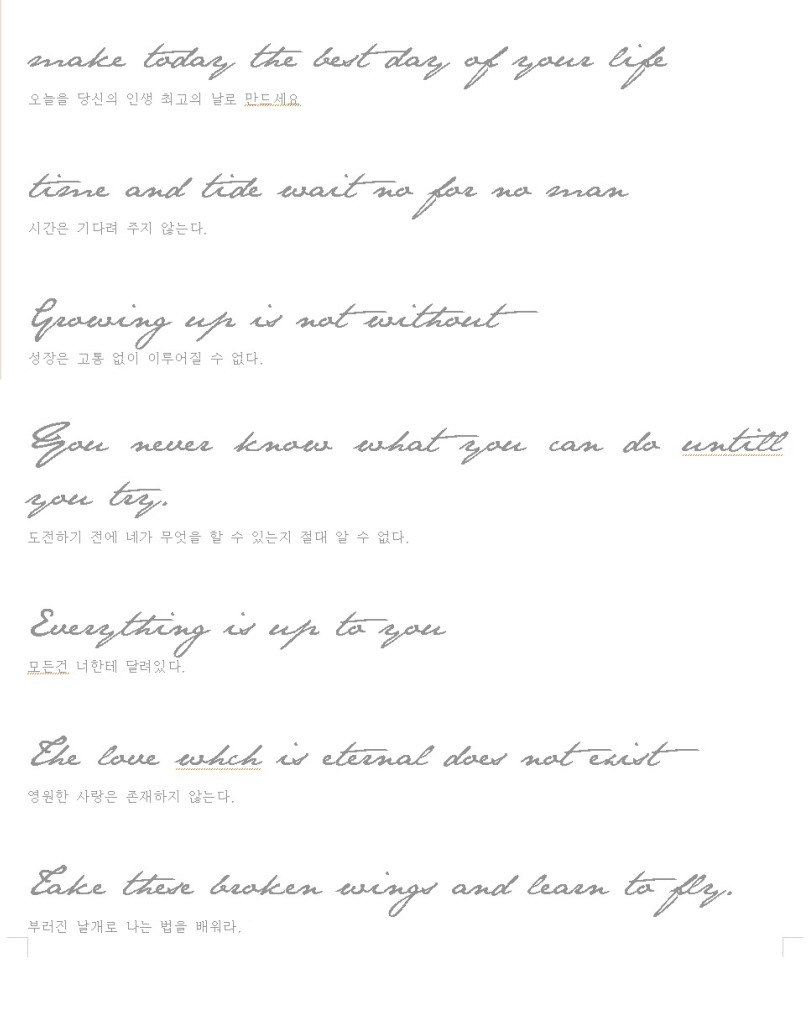 make today the best day of your life
오늘을 당신의 인생 최고의 날로 만드세요
time and tide wait no for no man
시간은 기다려 주지 않는다.
Growing up is not without
성장은 고통 없이 이루어질 수 없다.
You never know what you can do untill
you try.
도전하기 전에 네가 무엇을 할 수 있는지 절대 알 수 없다.
Everything is up to you
모든건 너한테 달려있다.
The love whch is eternal does not exist
영원한 사랑은 존재하지 않는다.
Take these broken wings and learn to fly.
부러진 날개로 나는 법을 배워라.